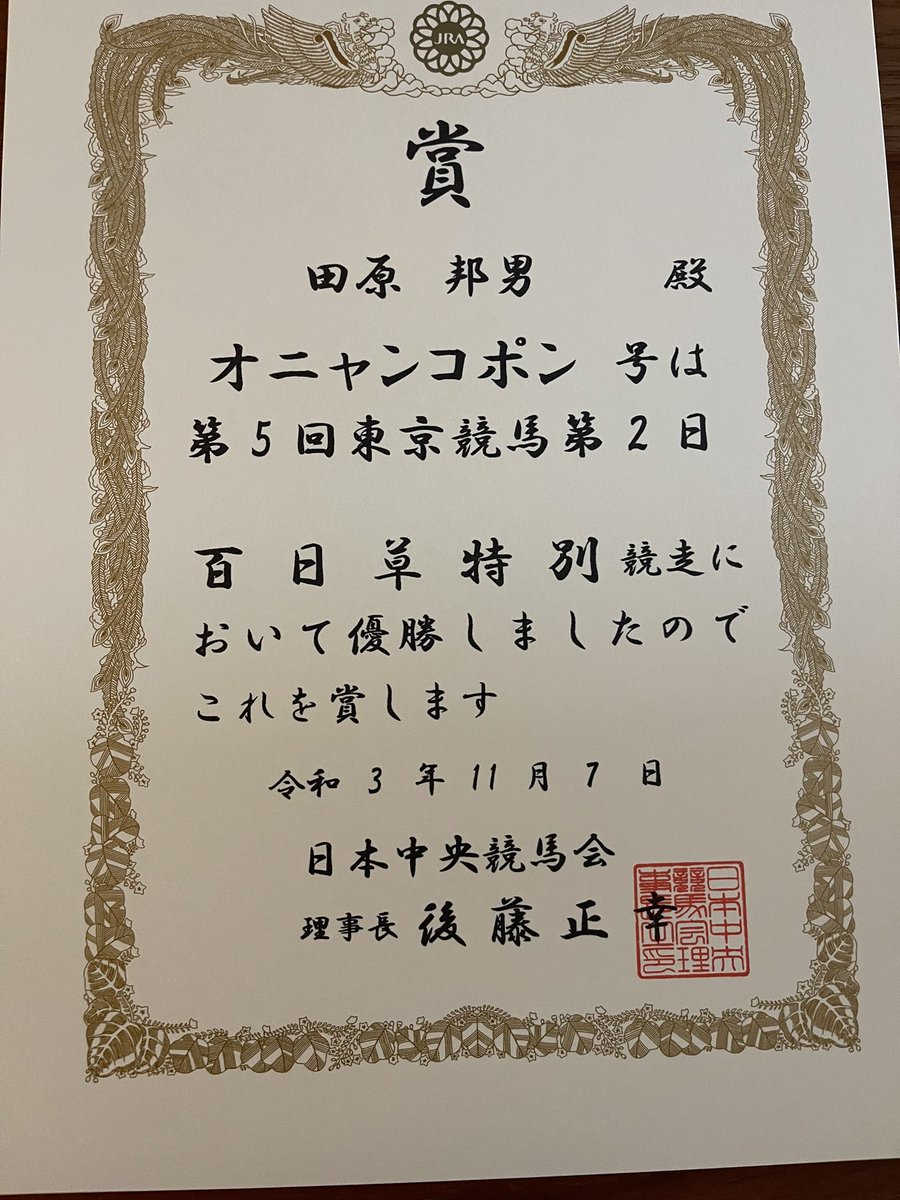 JRA
賞
田原 邦男 殿
オニャンコポン 号は
第5回東京競馬第2日
百日草特別競走に
おいて優勝しましたので
これを賞します
令和 3 年 11 月 7 日
日本中央競馬会
理事長 後藤正幸
日本中央
競馬会理
事長之印